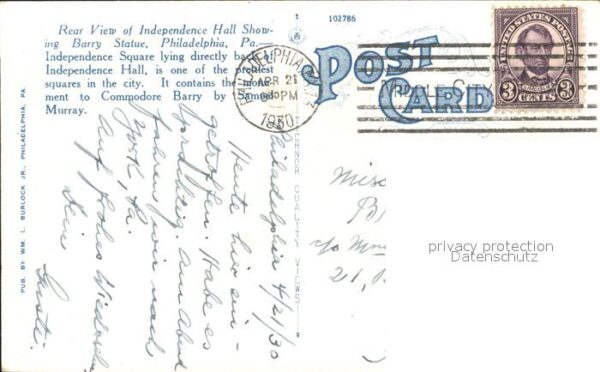 Rear View of Independence Hall Show-
ing Barry Statue, Philadelphia, Pa.—
Independence Square lying directly back of
Independence Hall, is one of the prettiest
squares in the city. It contains the monu-
ment to Commodore Barry by Samuel
Murray.
102786
POST
CARD
PHILADELPHIA
APR 21
PM
1930
UNITED STATES POSTAGE
LINCOLN
3 CENTS 3
PUB. BY WM. L. BURLOCK JR., PHILADELPHIA, PA
QUALITY VIEWS
Philadelphia 4/21/30
Heute hier ein-
getroffen. Habe es
Am Abend
fahren wir nach
York, Pa.
Auf frohes Wiedersehn
Dein
Miss
c/o
21,
privacy protection
Datenschutz